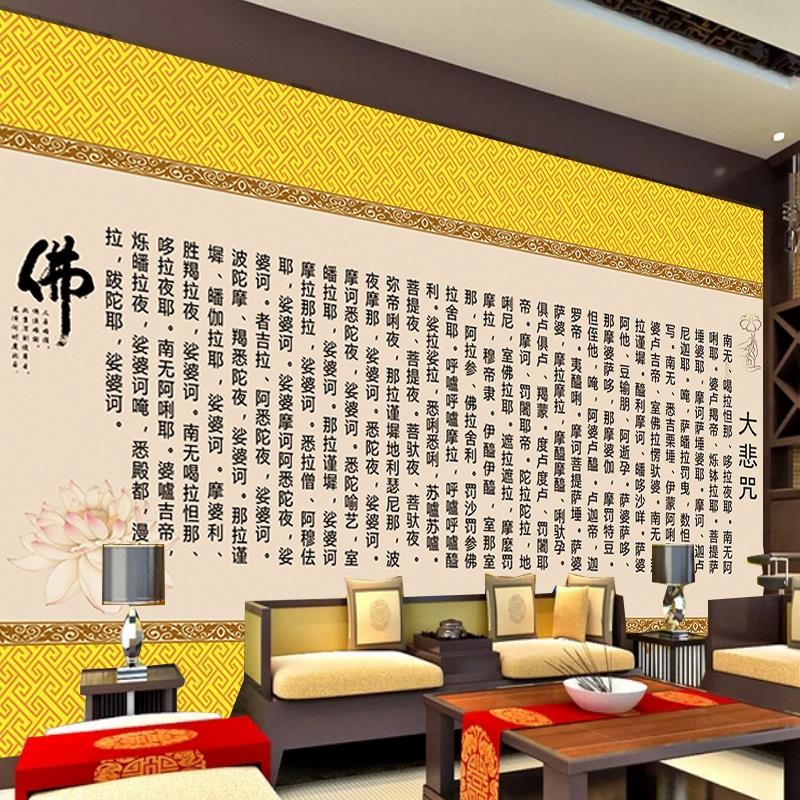 大悲咒
南无、喝拉怛那、哆拉夜耶。南无阿
唎耶。婆卢羯帝、烁钵拉耶。菩提萨
埵婆耶。摩诃萨埵婆耶。摩诃、迦卢
尼迦耶。唵，萨皤拉罚曳，数怛
写。南无、悉吉栗埵、伊蒙阿唎
婆卢吉帝、室佛拉楞驮婆。南无、
拉谨墀。醯利摩诃、皤哆沙咩。萨婆
阿他、豆输朋，阿逝孕。萨婆萨哆、
那摩婆萨哆，那摩婆伽，摩罚特豆。
怛侄他，唵，阿婆卢醯。卢迦帝、迦
罗帝、夷醯唎。摩诃菩提萨埵。萨婆
萨婆，摩拉摩拉，摩醯摩醯、唎驮孕。
俱卢俱卢、羯蒙。度卢度卢、罚闍耶
帝。摩诃、罚闍耶帝。陀拉陀拉，地
唎尼，室佛拉耶。遮拉遮拉，摩麼罚
摩拉，穆帝隶。伊醯伊醯，室那室
那，阿拉参、佛拉舍利。罚沙罚参佛
拉舍耶。呼嚧呼嚧摩拉，呼嚧呼嚧醯
利。娑拉娑拉，悉唎悉唎，苏嚧苏嚧
菩提夜、菩提夜、菩驮夜、菩驮夜。
弥帝唎夜，那拉谨墀地利瑟尼那，波
夜摩那，娑婆诃。悉陀夜，娑婆诃。
摩诃悉陀夜，娑婆诃。悉陀喻艺，室
皤拉耶，娑婆诃。那拉谨墀，娑婆诃。
摩拉那拉，娑婆诃。悉拉僧、阿穆佉
耶，娑婆诃。娑婆摩诃阿悉陀夜，娑
婆诃。者吉拉、阿悉陀夜，娑婆诃。
波陀摩、羯悉陀夜，娑婆诃。那拉谨
墀、皤伽拉耶，娑婆诃。摩婆利、
胜羯拉夜，娑婆诃。南无喝拉怛那、
哆拉夜耶。南无阿唎耶。婆嚧吉帝，
烁皤拉夜，娑婆诃唵，悉殿都，漫
拉，跋陀耶，娑婆诃。
佛